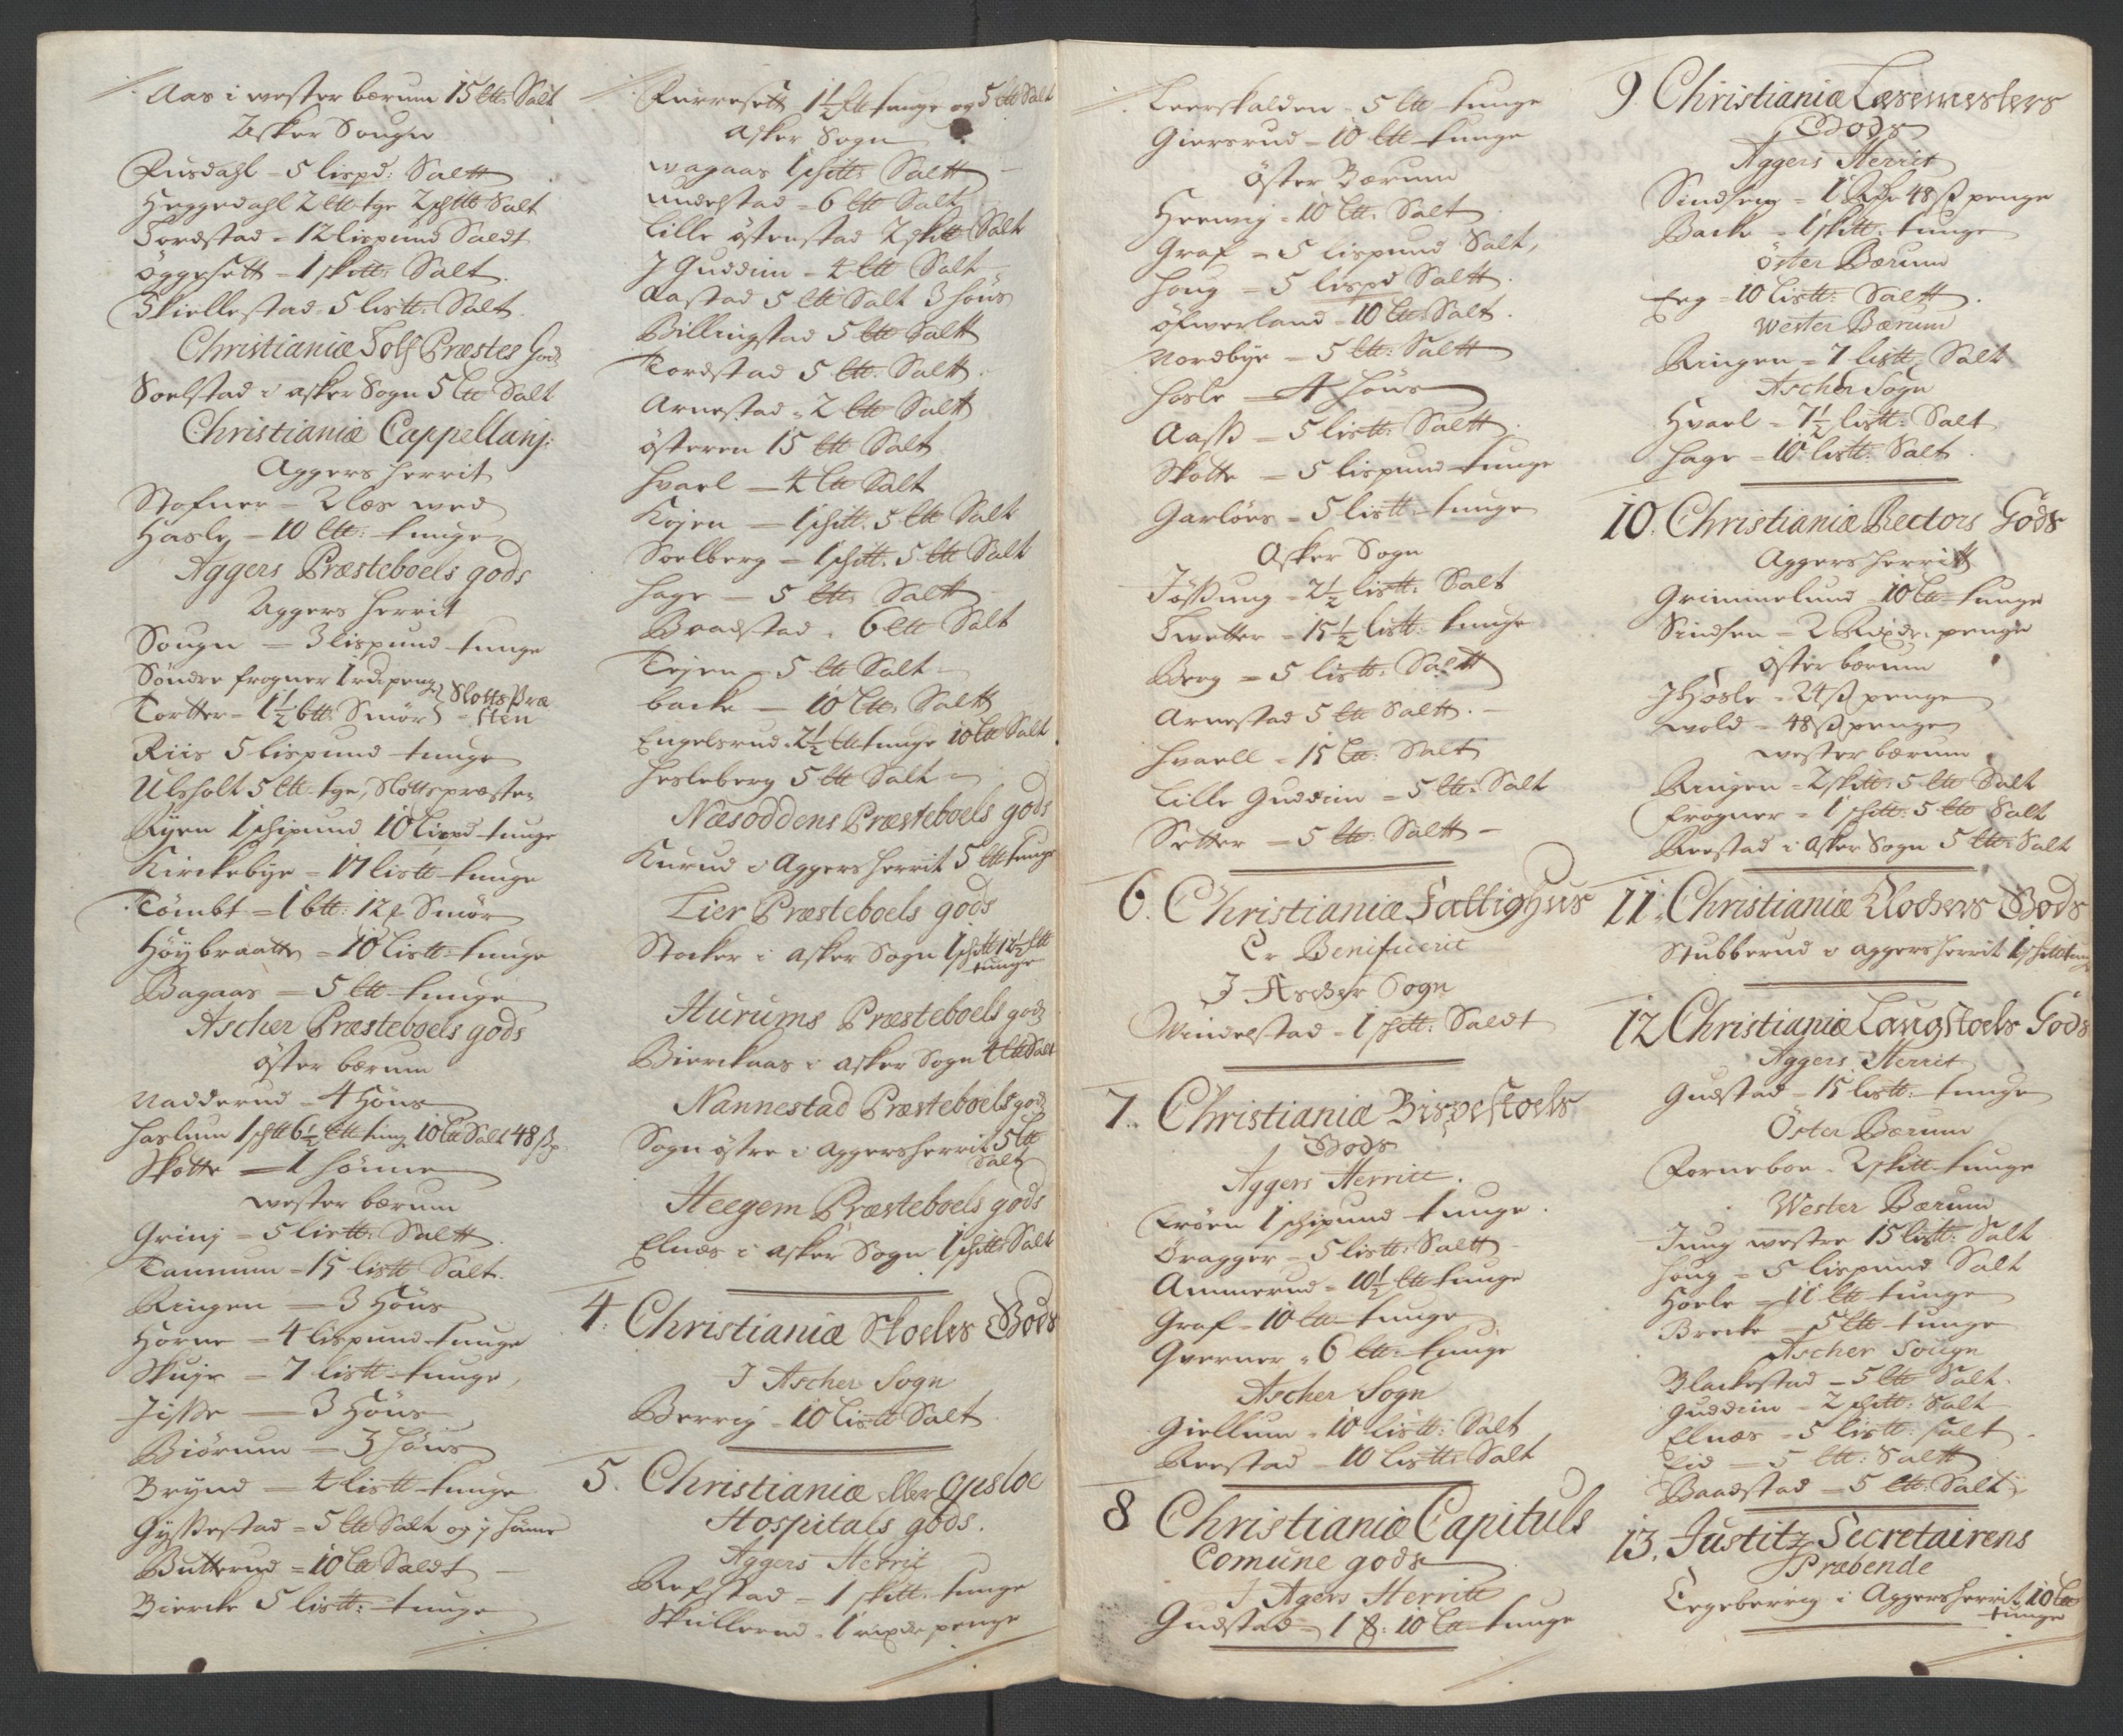 Aas i wester bærum 15 ltt: Salt
Asker Sougn
Rusdahl - 5 lispd: Saltt
Heggedahl 2 ltt tge 2 schtt Salt
Tordstad = 12 lispund Saldt
öggesett - 1 skitt: Salt
Skiellestad - 5 listt: Salt
Christianiæ Tolf Præstes Godz
Soelstad i asker Sogn 5 ltt Salt
Christianiæ Cappellanj:
Aggers herrit
Stofner - 2 læs wed
Hasly - 10 ltt: tunge
Aggers Præsteboels gods
Aggers herrit
Sougn - 3 lispund tunge
Söndre frogner 1 rd penge
Tortter - 1½ btt: Smör Slotts Præ
sten
Riis 5 lispund tunge
Ulsholt 5 ltt tge, Slottspræsten
Ryen 1 schipund 10 lispd tunge
Kirckebye - 17 listt tunge
Tömbt - 1 btt: 12 Smör
Höybraatte - 10 listt tunge
Bagaas - 5 ltt tunge
Ascher Præsteboels gods
öster bærum
Nadderud - 4 Höns
Haslum 1 schtt 6½ ltt tung 10 ltt Salt 48 ß p
Skotte - 1 hönne
wester bærum
Grinj - 5 listt: Saltt
Tannum - 15 listt Salt
Ringen - 3 Höns
Horne - 4 lispund tunge
Skuje - 7 listt tunge
Jisse - 3 Höns
Biörum - 3 höns
Brynd - 4 listt tunge
Gyssestad - 5 ltt Salt og j hönne
Butterud - 10 ltt Saldt
Biercke 5 listt: tunge
Furresett 1½ ltt tunge og 5 ltt Salt
asker Sogn
wagaas 1 schtt: Saltt
undelstad - 6 ltt Salt
Lille östenstad 2 skitt Salt
J Guddim - 4 ltt Salt
Aastad 5 ltt Salt 3 höns
Billingstad 5 ltt Saltt
Tordstad 5 ltt: Saltt
Arnestad - 2 ltt Saltt
österen 15 ltt Salt
Hvael - 4 ltt Salt
Kojen - 1 schtt. 5 ltt Salt
Soelberg - 1 schtt. 5 ltt Salt
Hage - 5 ltt Saltt
Braadstad - 6 ltt Salt
Tejen - 5 ltt Salt
backe - 10 ltt: Saltt
Engelsrud 2½ ltt tunge 10 ltt Salt
Hesleberg 5 ltt Salt
Næsoddens Præsteboels gods
Kurud i Aggers herrit 5 ltt tunge
Lier Præsteboels gods
Stocker i asker Sogn 1 schtt 12½ ltt
tunge
Hurums Præsteboels godz
Bierckaas i asker Sogn 4 ltt Salt
Nannestad Præsteboels godz
Sogn östre i Aggersherrit 5 ltt
Salt
Heegem Præsteboels gods
Elnæs i asker Sogn 1 schtt: Salt
4. Christianiæ Skoeles Gods
J Ascher Sogn
Berrig - 10 listt Salt
5. Christianiæ eller Opsloe
Hospitals gods.
Aggers Herrit
Refstad - 1 skitt: tunge
Skullerud - 1 rixdr penge
Leerskalden - 5 ltt tunge
Giersrud - 10 ltt tunge
öster Bærum
Herwig - 10 ltt: Salt
Graf - 5 lispund Salt,
Houg - 5 lispd Saltt
öfwerland - 10 ltt: Salt
Nordbye - 5 ltt: Saltt
Hosle - 4 höns
Aass - 5 listt: Saltt
Skotte - 5 lispund tunge
Garlöes - 5 listt tunge
Asker Sogn
Jössung - 2½ listt: Salt
Twetter - 15½ listt: tunge
Berg - 5 listt: Saltt
Arnestad 5 ltt Saltt
Hvaell - 15 ltt: Salt
Lille Guddim - 5 ltt: Salt
Setter - 5 ltt: Saltt
6. Christianiæ Fattighus
Er Benificerit
J Ascher Sogn
Windelstad - 1 schtt: Saldt
7. Christianiæ Bispestoels
Gods
Aggers Herritt.
Fröen 1 schipund tunge
Öragger - 5 listt: Saltt
Ammerud - 10½ ltt tunge
Graf - 10 ltt tunge
Gverner - 6 ltt: tunge
Ascher Sogn
Giellum - 10 listt: Salt
Reestad - 10 listt: Salt
8 Christianiæ Capituls
Comune gods
J Agers Herritt
Gudstad - 1 8: 10 ltt tunge
9. Christianiæ Læsemesters
Gods
Aggers Herrit
Sindsen - 1 Rdr 48 ß penge
Backe - 1 skitt: tunge
öster Bærum
Eeg - 10 listt: Saltt
Wester Bærum
Ringen - 7 listt: Salt
Ascher Sogn
Hvael - 7½ listt: Salt
Hage - 10 listt: Salt
10. Christianiæ Rectors Gods
Aggers herritt
Grimmelund - 10 ltt tunge
Sindsen - 2 Rixdr: penge
öster bærum
J Hösle - 24 ß penge
wold - 48 ß penge
wester bærum
Ringen - 2 skitt: 5 ltt Salt
frogner - 1 schtt: 5 ltt Salt
Reestad i Asker Sogn 5 ltt: Salt
11. Christianiæ Klochers Gods
Stubberud i aggers herrit 1 schtt tunge
12 Christianiæ Laugstoels Gods
Aggers Herrit
Gudstad - 15 listt: tunge
Öster Bærum
Forneboe - 2 skitt tunge
Wester Bærum
Jung westre 15 listt: Salt
Houg - 5 lispund Salt
Hoele - 11 ltt tunge
Brecke - 5 ltt tunge
Ascher Sougn
Blackestad - 5 ltt Salt
Guddim - 2 schtt: Salt
Elnæs - 5 listt: salt
Eid - 5 ltt: Saltt
Baadstad - 5 ltt: Salt
13. Justitz Secretairens
Præbende
Tegeberrig i Aggersherrit 10 ltt
tunge